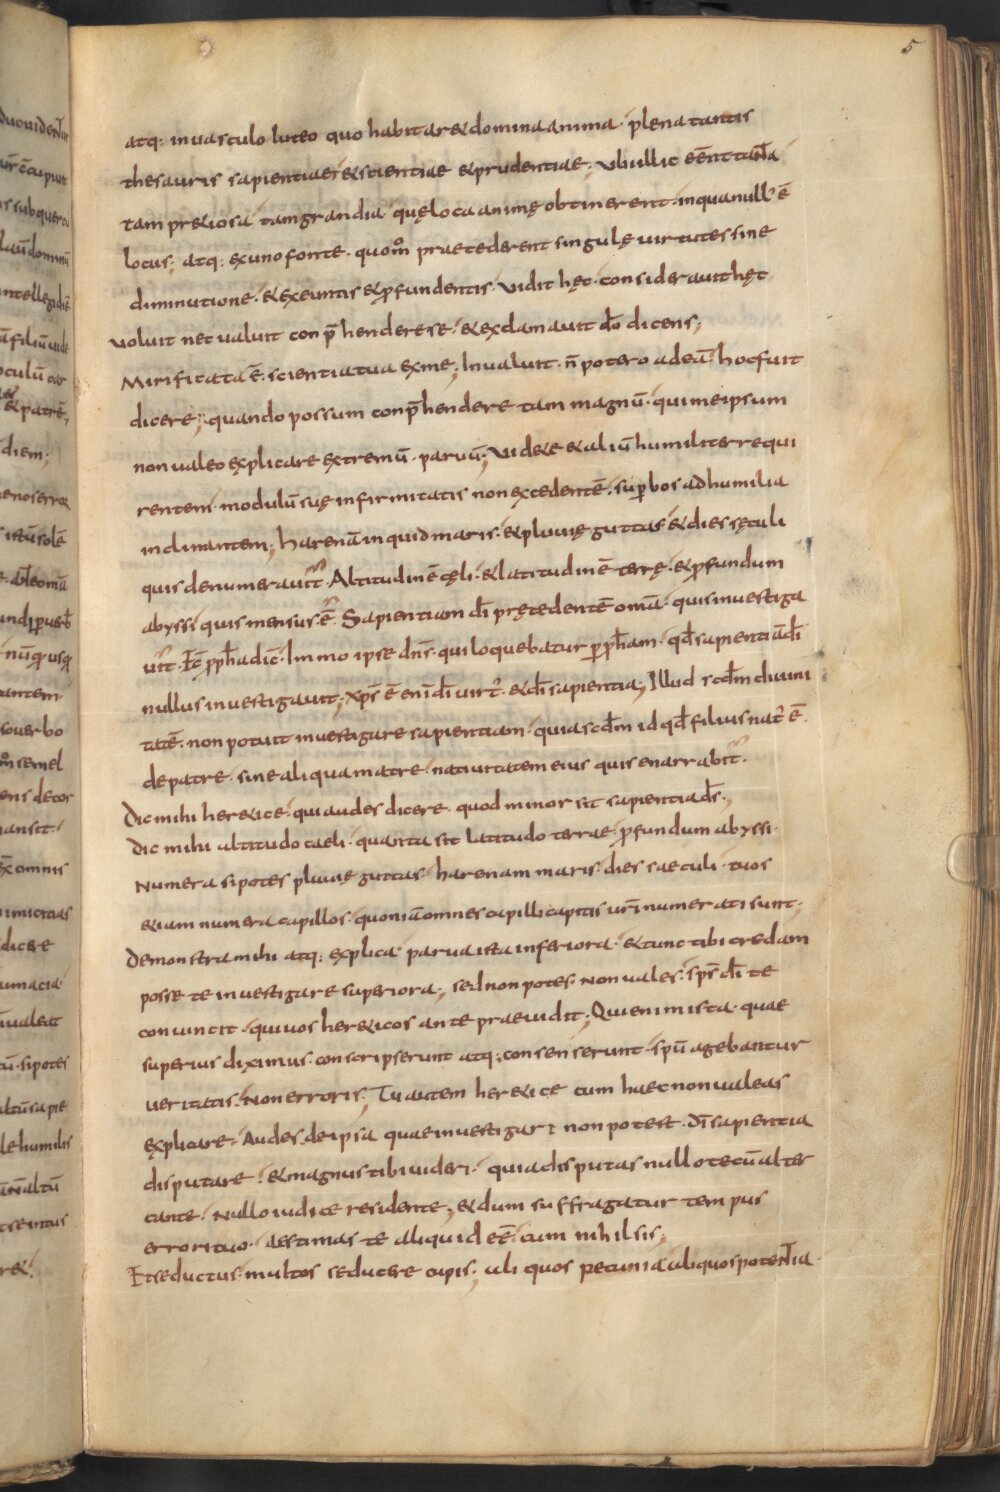 5
atq: in uasculo luteo quo habitar& domina anima· plena tantis
thesauris sapientiae· & scientiae & prudentiae; Ubi illic eēnt tanta
tam pr&iosa tam grandia· quę loca animę obtinerent· in qua null' ē
locus; atq: ex uno fonte· quom̊ praecederent singulę uirtutes sine
diminutione· & exeuntis & p̄fundentis· Vidit hęc· considerauit hęc·
voluit nec ualuit conp̄hendere se· & exclamauit dō dicens;
Mirificata ē· scientia tua ex me; Inualuit· n̄ potero ad eā· hoc fuit
dicere; quando possum conp̄hendere tam magnū· qui me ipsum
non ualeo explicare extremū· paruū; Vid&e & aliū humiliter requi
rentem· modulū suę infirmitatis non excedentē· sup̱bos ad humilia
inclinantem; harenā inquid maris· & pluuię guttas & dies sęculi
quis denumerauit· Altitudinē cęli· & latitudinē terrę· & p̄fundum
abyssi quis mensus· ē· Sapientiam dī pręcedentē omā· quis inuestiga
uit· Hę pph̄a dic̄· Immo ipse dn̄s· qui loquebatur p̱ pph̄am· qđ sapientiā dī
nullus inuestigauit; xp̄s ē enī dī uirt'· & dī sapientia; Illud scđm diuini
tatē· non potuit inuestigare sapientiam· quia scđm id qđ filius nat' ē
de patre· sine aliqua matre· natiuitatem eius quis enarrabit·
Dic mihi her&ice· qui audes dicere· quod minor sit sapientia dī·;
Dic mihi altitudo caeli· quanta sit latitudo terrae· p̄fundum abyssi·
Numera si potes pluuię guttas· harenam maris· dies saeculi· tuos
&iam numera capillos· quoniā omnes capilli capitis ur̄i numerati sunt;
Demonstra mihi atq: explica· parua ista inferiora· & tunc tibi credam
posse te inuestigare superiora; sed non potes· Non uales· sp̄s dī te
conuincit· qui uos her&icos ante praeuidit; Qui enim ista· quae
superius diximus· conscripserunt atq: consenserunt· sp̄u agebantur
ueritatis· Non erroris; Tu autem her&ice cum haec non ualeas
explicare· Audes de ipsa quae inuestigari non potest· Dī sapientia
disputare· & magnus tibi uideri· quia disputas nullo tecū alter
cante· Nullo iudice residente; & dum suffragatur tempus
errori tuo· aestimas te aliquid eē· cum nihil sis;
Et seductus· multos seducere cupis; ali quos pecunia· aliquos potentia·